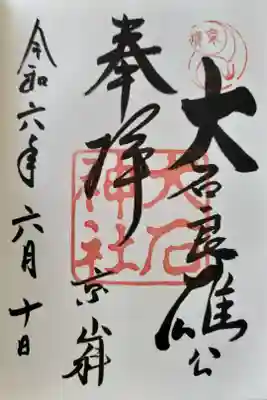 大石良雄公
奉拝
京山科
大石神社
令和六年六月十日